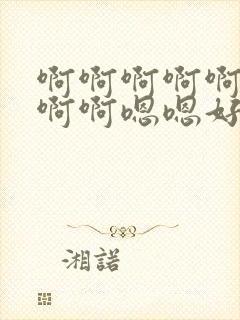 啊啊啊啊啊
啊啊嗯嗯好
湘諾